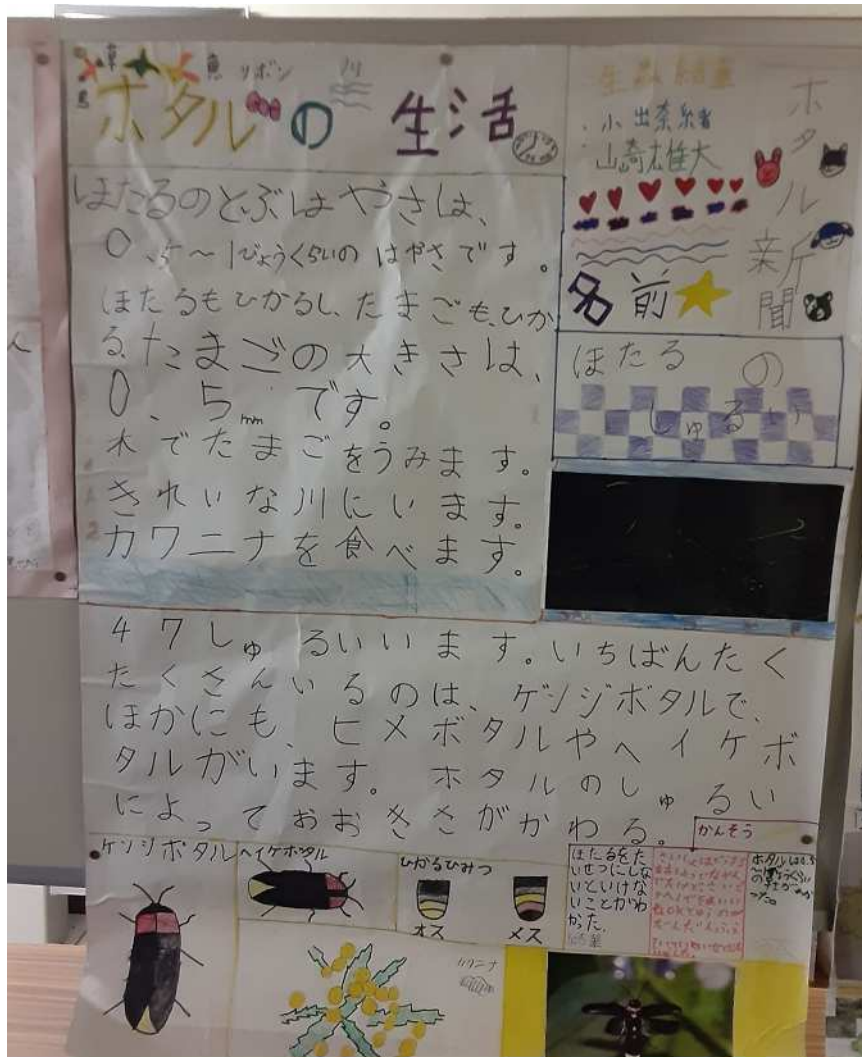 草
魚
リボン
川
ホタルの 生活
ほたるのとぶはやさは、
0、5〜1びょうくらいの はやさです。
ほたるもひかるし、たまごも、ひか
る。たまごの大きさは、
0、5mmです。
木でたまごをうみます。
きれいな川にいます。
カワニナを食べます。
小出奈緒
山崎雄大
名前
ホタル新聞
ほたるの
しゅるい
47しゅるいいます。いちばんたく
たくさんいるのは、ゲンジボタルで、
ほかにも、ヒメボタルやヘイケボ
タルがいます。ホタルのしゅるい
によっておおきさがかわる。
かんそう
ゲンジボタル
ヘイケボタル
ひかるひみつ
オス
メス
ほたるをた
いせつにしな
いといけな
いことがわ
かった。
カワニナ